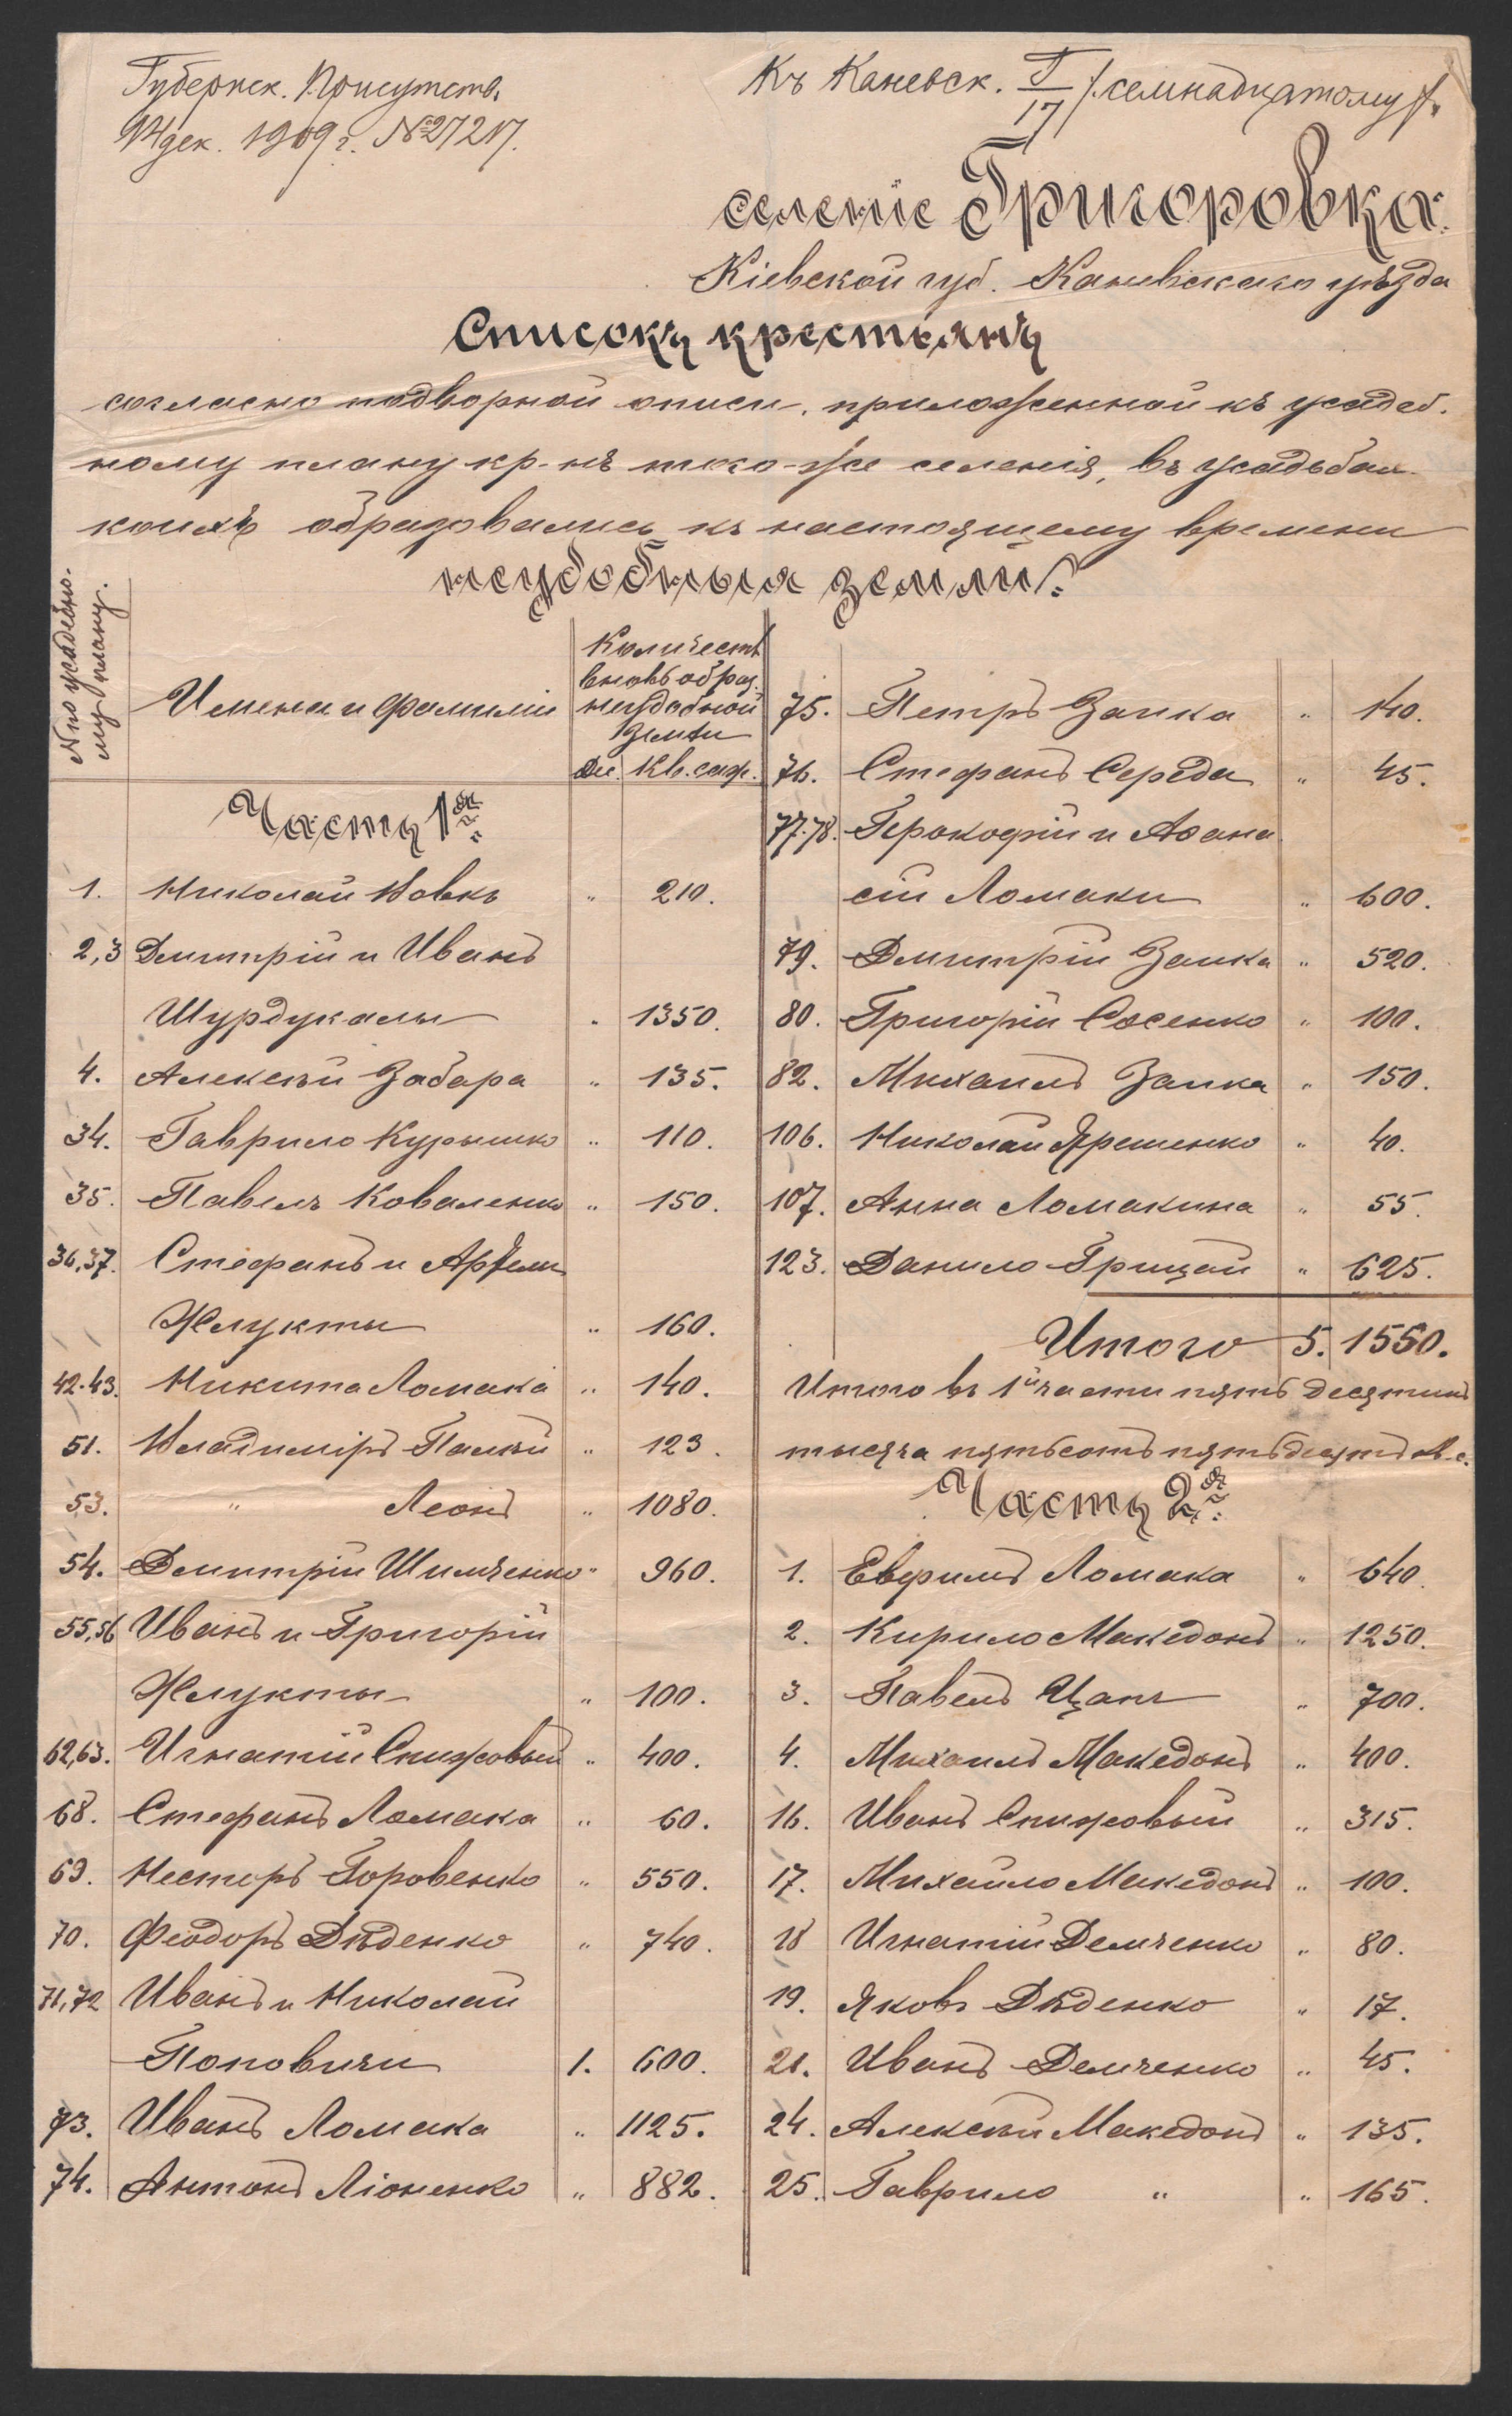 Губернск. Присутств.
14 дек. 1909 г. №27217.
Къ Каневск. I/17 /:семнадцатому:/.
селеніе Григоровка.
Кіевской губ. Каневскаго уѣзда
Списокъ крестьянъ
согласно подворной описи, приложенной къ усадеб.
ному плану кр-нъ того-же селенія, въ усадьбах
коихъ образовались къ настоящему времени
неудобныя земли:
№ по усадебно-
му плану.
Имена и фамиліи
Количеств
вновь образ.
неудобной
земли
Дес. Кв. саж.
Часть 1ая
1. Николай Вовкъ " 210.
2,3 Дмитрій и Иванъ
Шурдукалы " 1350.
4. Алексѣй Забара " 135.
34. Гаврило Курышко " 110.
35. Павелъ Коваленко " 150.
36,37. Стефанъ и Артем
Жлукты " 160.
42.43. Никита Ломака " 140.
51. Владиміръ Палѣй " 123.
53. " Леонъ " 1080.
54. Дмитрій Шимченко " 960.
55,56 Иванъ и Григорій
Жлукты " 100.
62,63. Игнатій Спижовый " 400.
68. Стефанъ Ломака " 60.
69. Несторъ Боровенко " 550.
70. Феодоръ Дѣденко " 740.
71,72 Иванъ и Николай
Поповичи 1. 600.
73. Иванъ Ломака " 1125.
74. Антонъ Ліоненко " 882.
75. Петръ Заика " 140.
76. Стефанъ Середа " 45.
77.78. Прокофій и Афана
сій Ломаки " 600.
79. Дмитрій Заика " 520.
80. Григорій Сосенко " 100.
82. Михаилъ Заика " 150.
106. Николай Ярешенко " 40.
107. Анна Ломакина " 55.
123. Данило Грицай " 625.
Итого 5. 1550.
Итого въ 1й части пять десятинъ
тысяча пятьсотъ пятьдесятъ кв. с.
Часть 2ая
1. Евфимъ Ломака " 640.
2. Кирило Македонъ " 1250.
3. Павелъ Цапъ " 700.
4. Михаилъ Македонъ " 400.
16. Иванъ Спижовый " 315.
17. Михайло Македонъ " 100.
18 Игнатій Демченко " 80.
19. Яковъ Дѣденко " 17.
21. Иванъ Демченко " 45.
24. Алексѣй Македонъ " 135.
25. Гаврило " " 165.